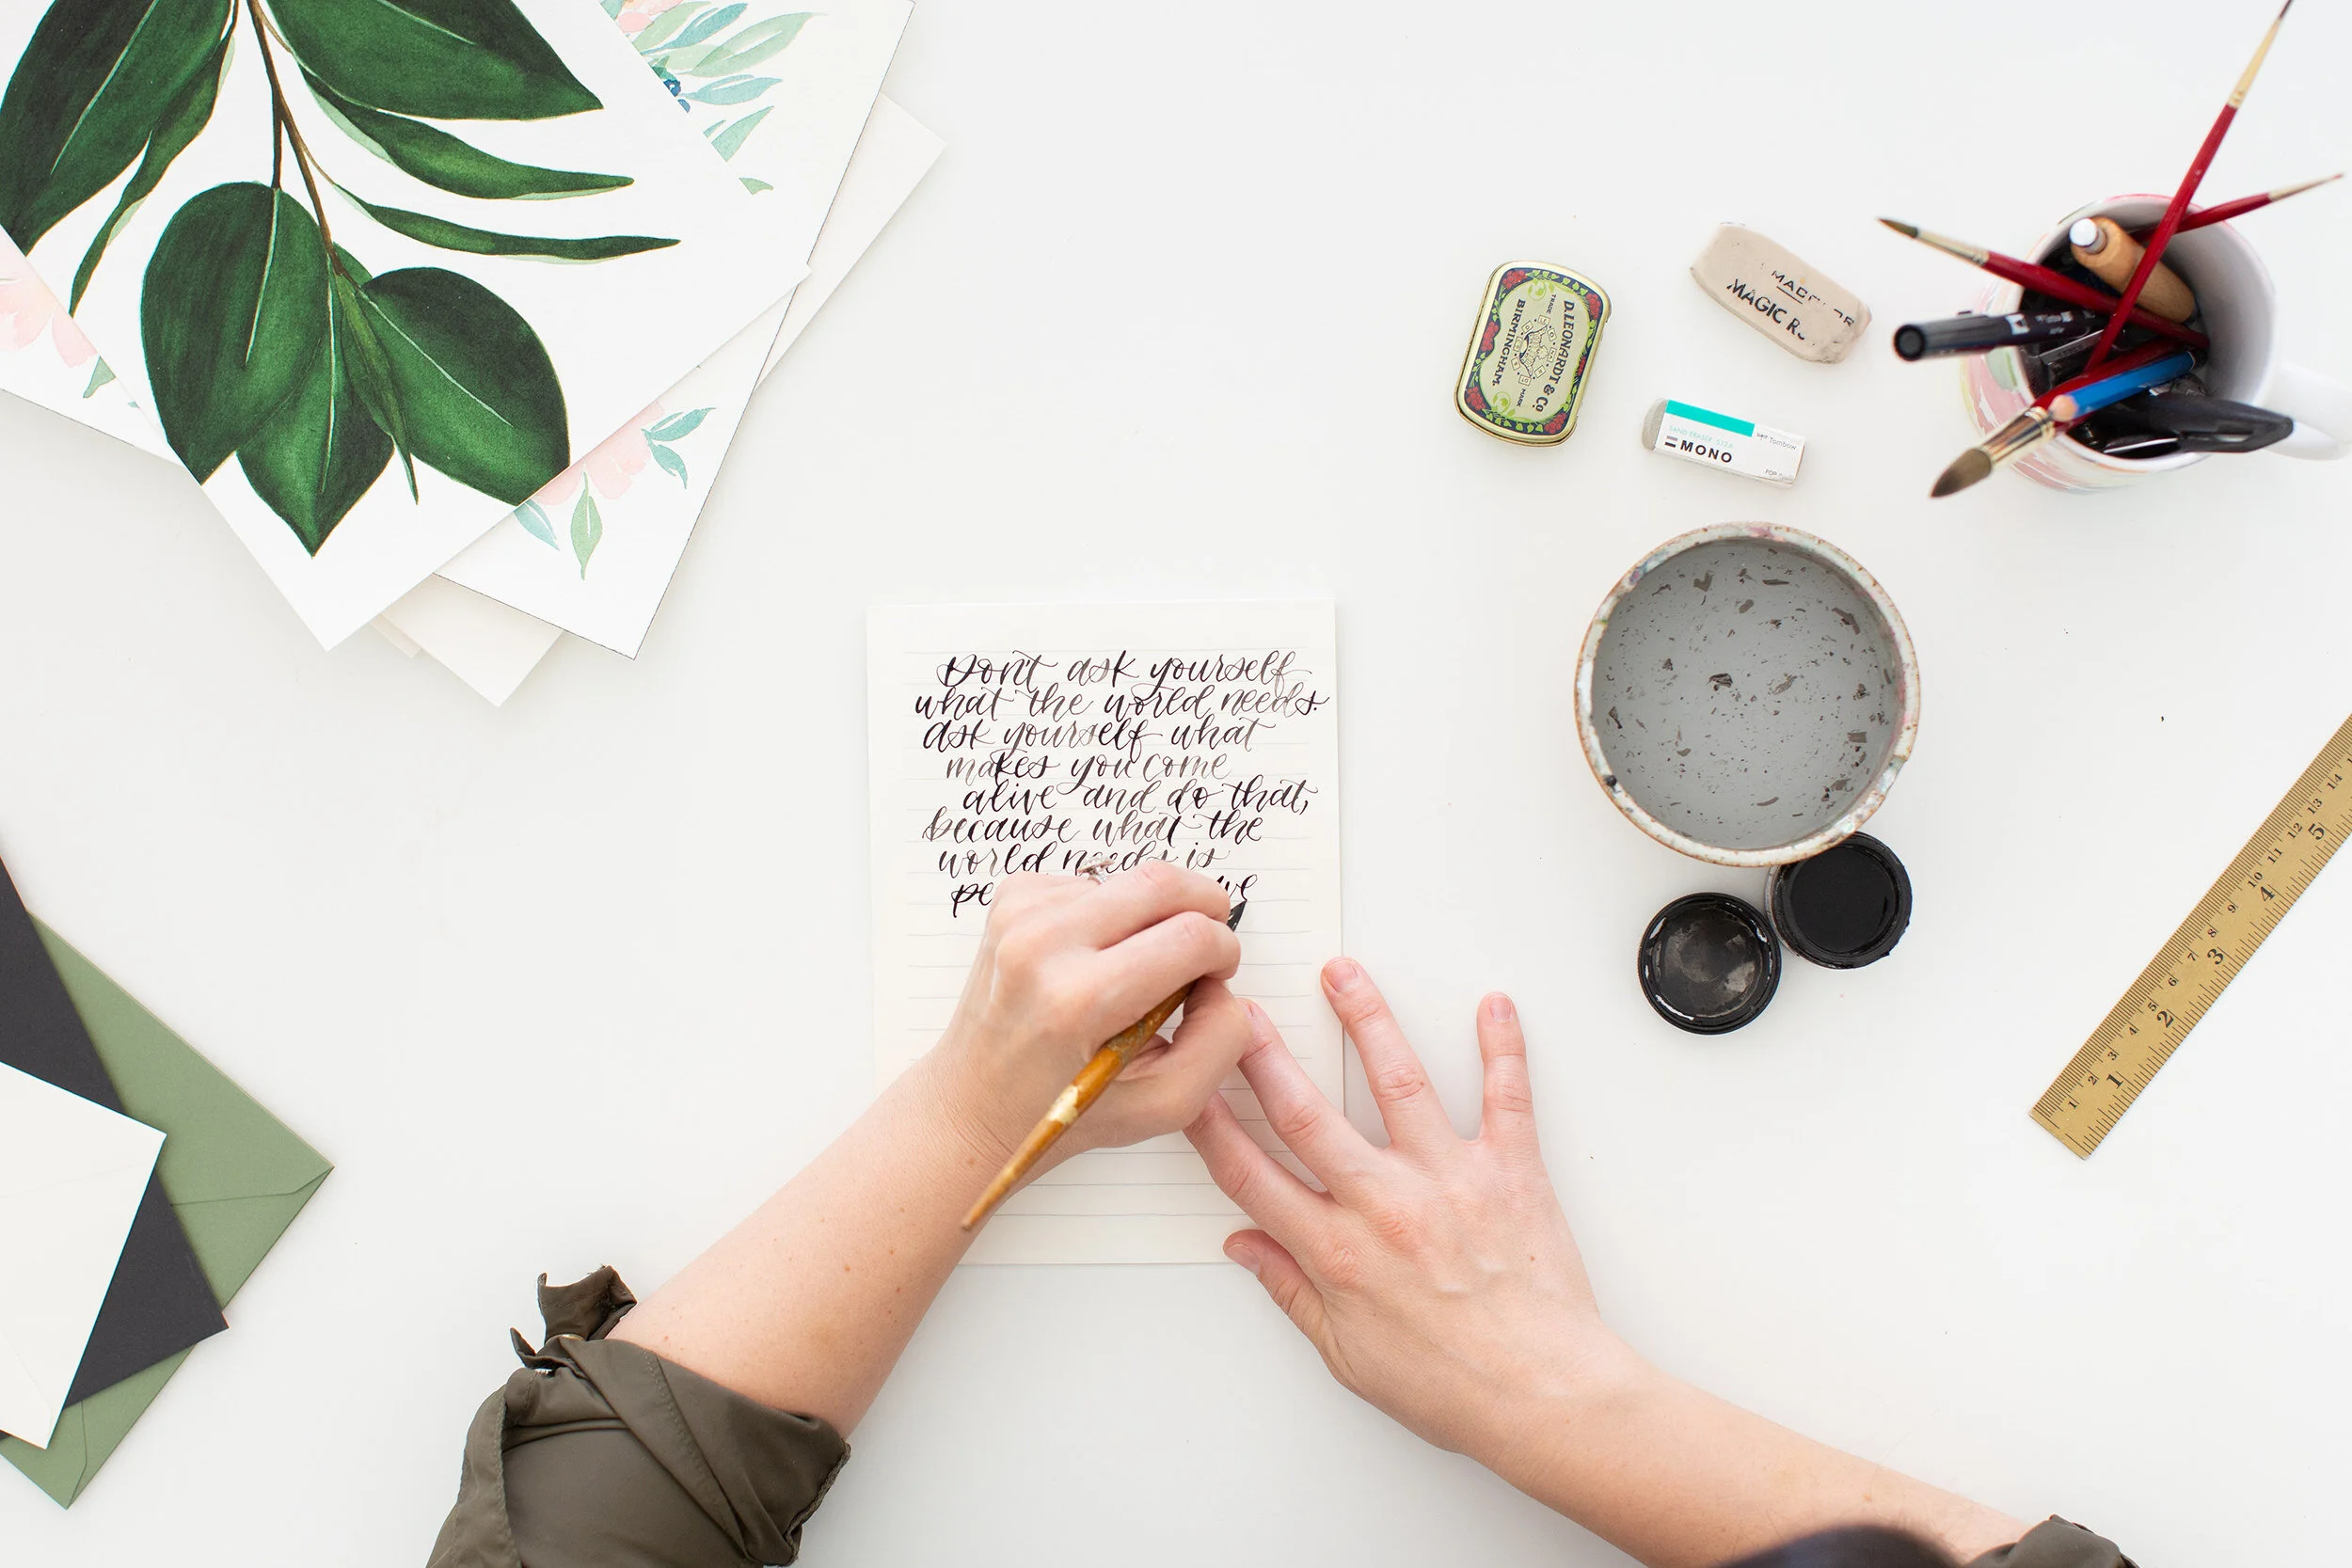 Don't ask yourself
what the world needs.
ask yourself what
makes you come
alive and do that,
because what the
world needs is
D. LEONARDT & Co
BIRMINGHAM.
TRADE
MARK
MAGIC
SAND ERASER
Tombow
MONO
1 2 3 4 5
1 2 3 4 5 6 7 8 9 10 11 12 13 14